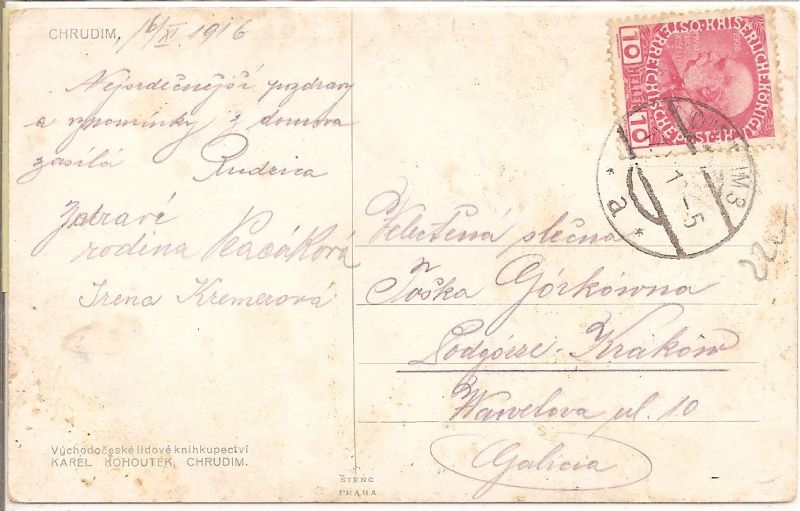 CHRUDIM, 16/XI 1916
Nejsrdečnější pozdravy
a vzpomínky z domova
zasílá Rudvica
Zdravé
rodina Kacáková
Irena Kremerová
Východočeské lidové knihkupectví
KAREL KOHOUTEK, CHRUDIM.
ŠTENC
PRAHA
10 HELLER 10
KAISERLICHE KÖNIGLICHE
ÖSTERREICHISCHE POST
CHRUDIM 3
* a *
Velectěná slečna
Toška Górkówna
Podgórze - Kraków
Wawelova ul. 10
Galicia